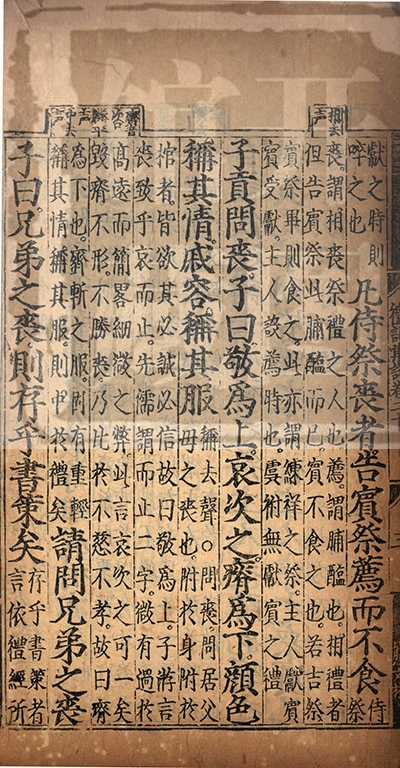 相去
聲
獻之時則
啐之也
凡侍祭喪者告賓祭薦而不食
侍祭
喪謂相喪祭禮之人也薦謂脯醢也相禮者
但告賓祭此脯醢而已賓不食之也若吉祭
賓祭畢則食之此亦謂練祥之祭主人獻賓
賓受獻主人設薦時也虞祔無獻賓之禮
子貢問喪子曰敬爲上哀次之瘠爲下顏色
稱其情戚容稱其服
稱去聲○問喪問居父
母之喪也附於身附於
棺者皆欲其必誠必信故曰敬爲上子游言
喪致乎哀而止先儒謂而止二字微有過於
高遠而簡畧細微之弊此言哀次之可一矣
毀瘠不形不勝喪乃比於不慈不孝故曰瘠
爲下也齊斬之服固有重輕
稱其情稱其服則中於禮矣
請問兄弟之喪
子曰兄弟之喪則存乎書策矣
存乎書策者
言依禮經所